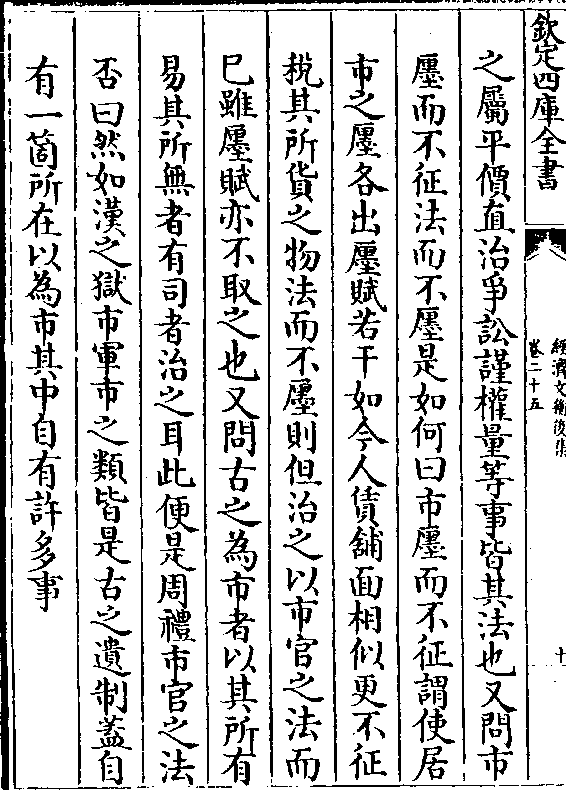 欽定四庫全書
經濟文衡後集
卷二十五
十
之屬平價直治爭訟謹權量等事皆其法也又問市
廛而不征法而不廛是如何曰市廛而不征謂使居
市之廛各出廛賦若干如今人賃舖面相似更不征
稅其所貨之物法而不廛則但治之以市官之法而
已雖廛賦亦不取之也又問古之為市者以其所有
易其所無者有司者治之耳此便是周禮市官之法
否曰然如漢之獄市軍市之類皆是古之遺制蓋自
有一箇所在以為市其中自有許多事